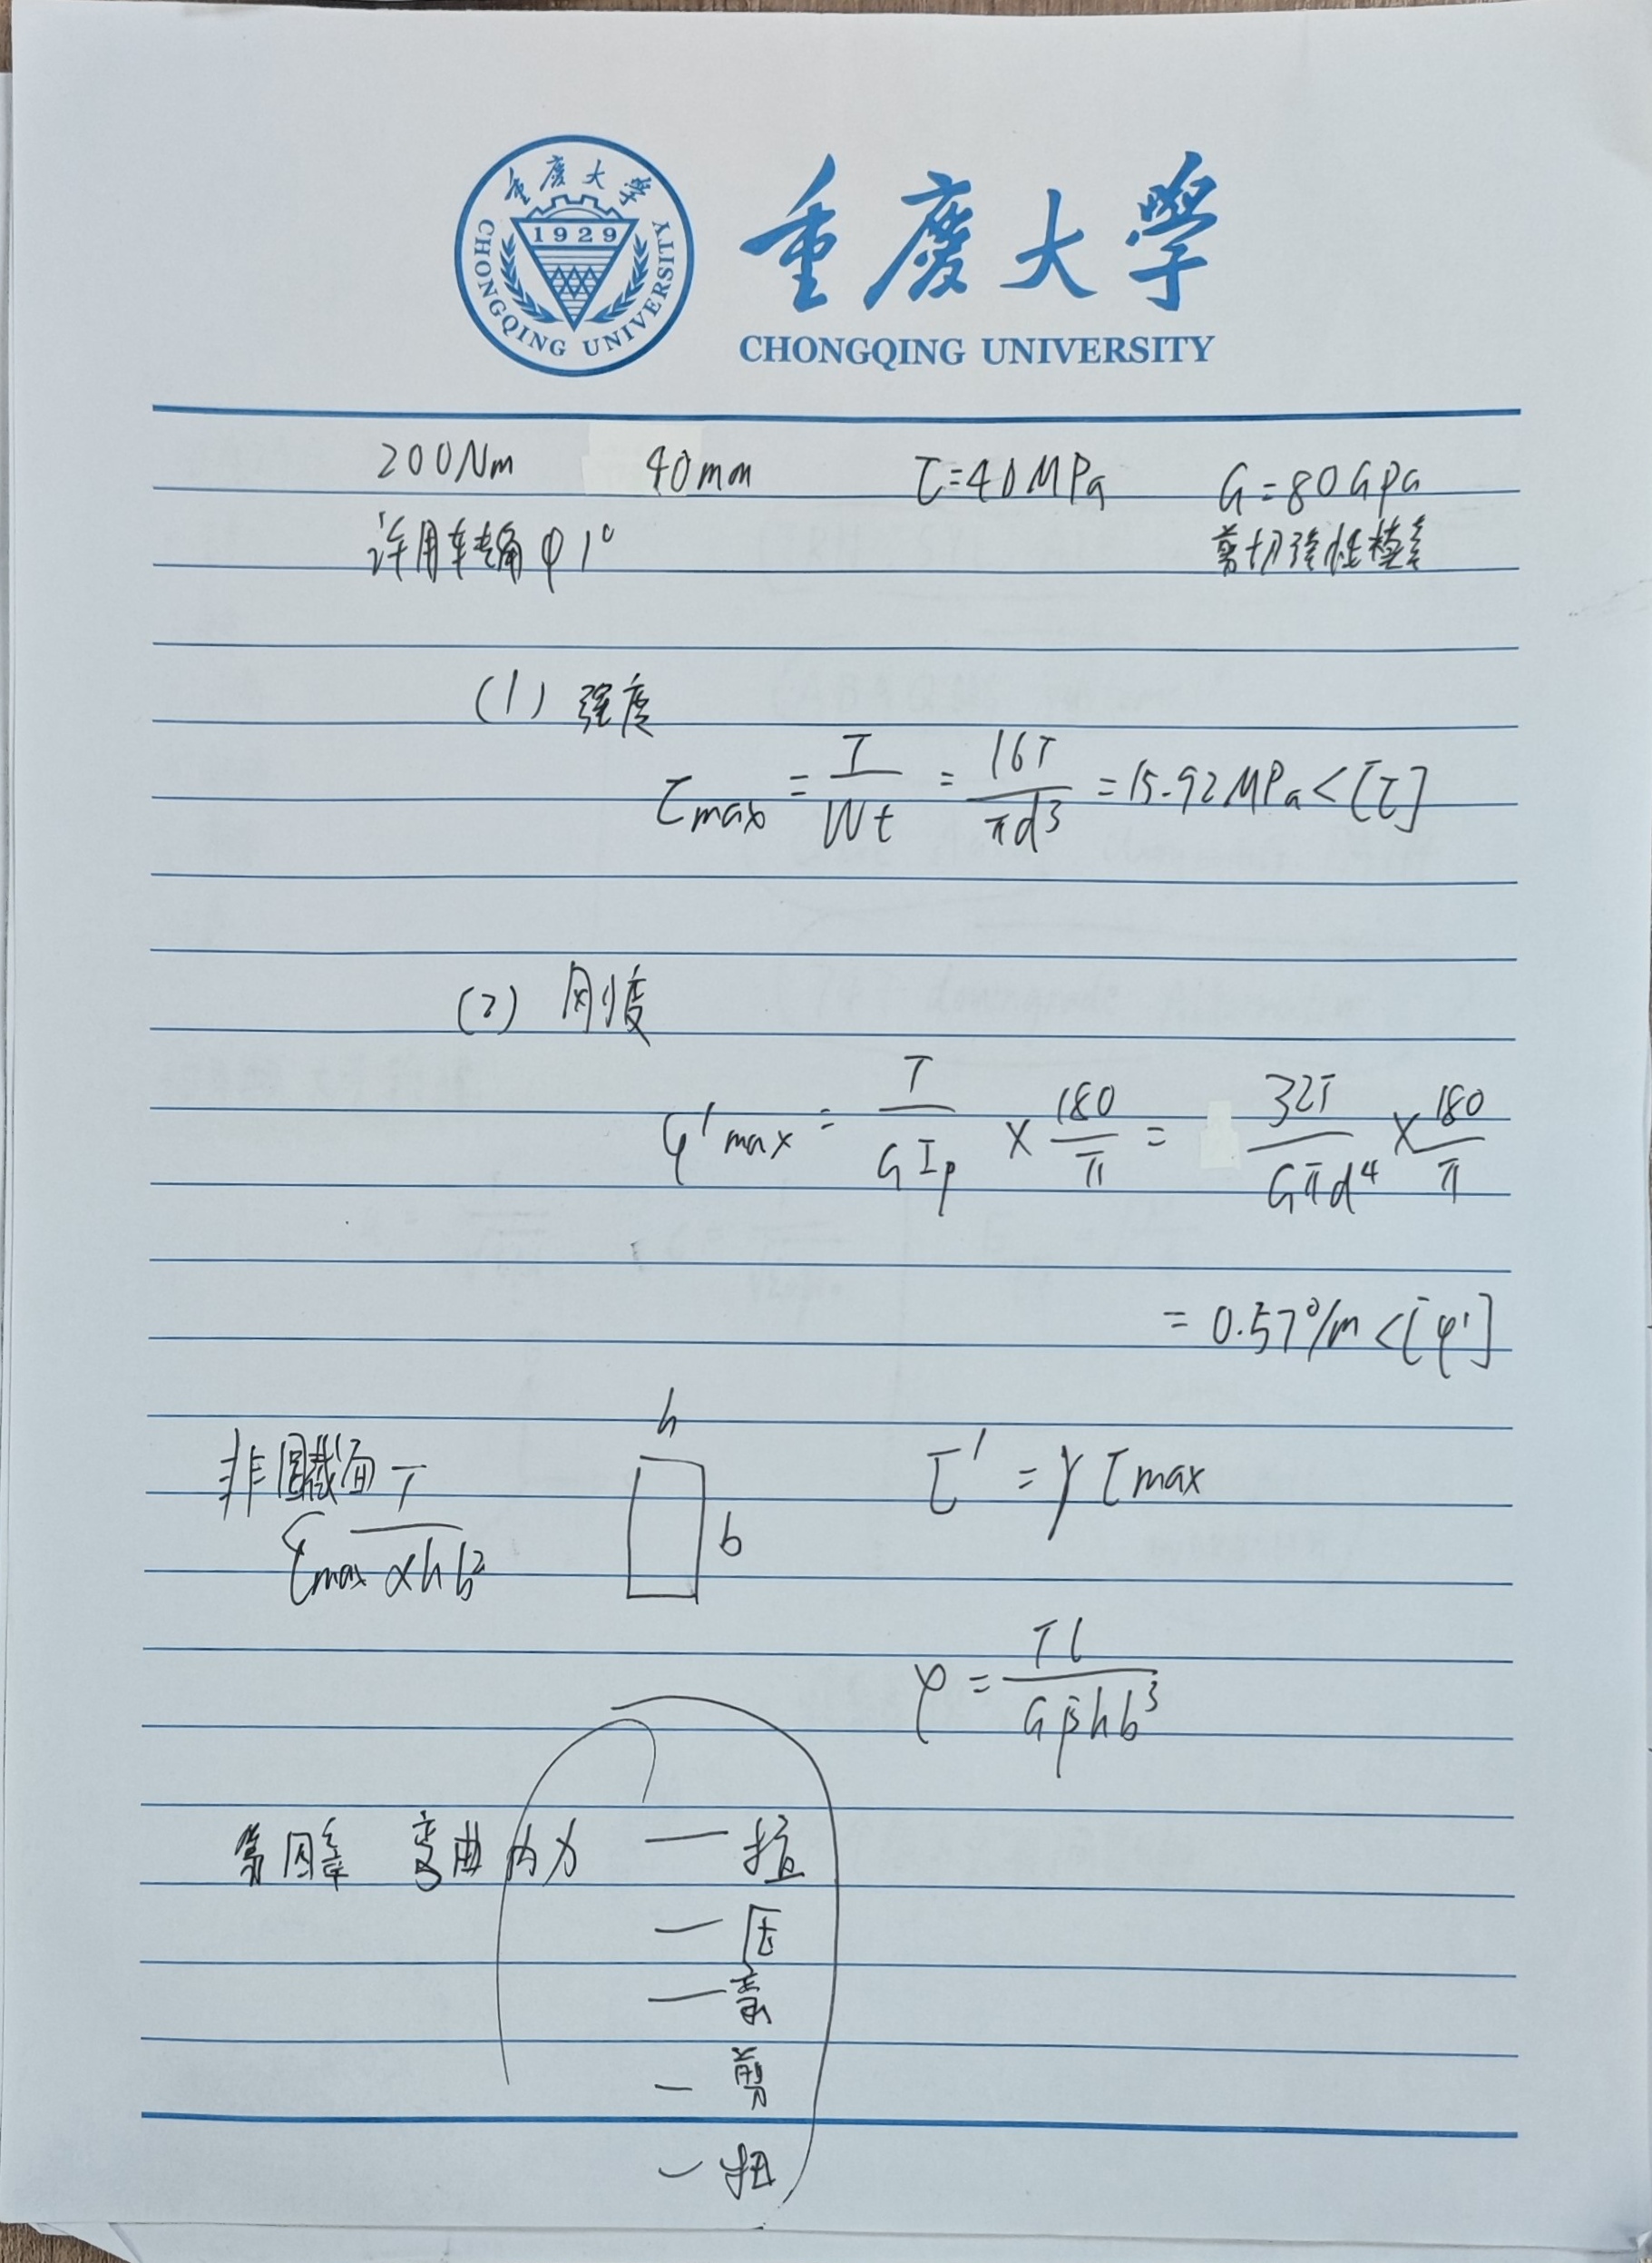 重慶大學
CHONGQING UNIVERSITY
1929
重慶大學
CHONGQING UNIVERSITY
200Nm 40mm τ=40MPa G=80GPa
许用转角φ1° 剪切弹性模量
(1) 强度
τmax = T/Wt = 16T/πd³ = 15.92MPa<[τ]
(2) 刚度
φ'max = T/GIp × 180/π = 32T/Gπd⁴ × 180/π
= 0.57°/m <[φ']
h
非圆截面 τ' = γ τmax
τmax T/αhb² b
φ = Tl/Gβhb³
第四章 弯曲内力 — 拉
— 压
— 弯
— 剪
— 扭